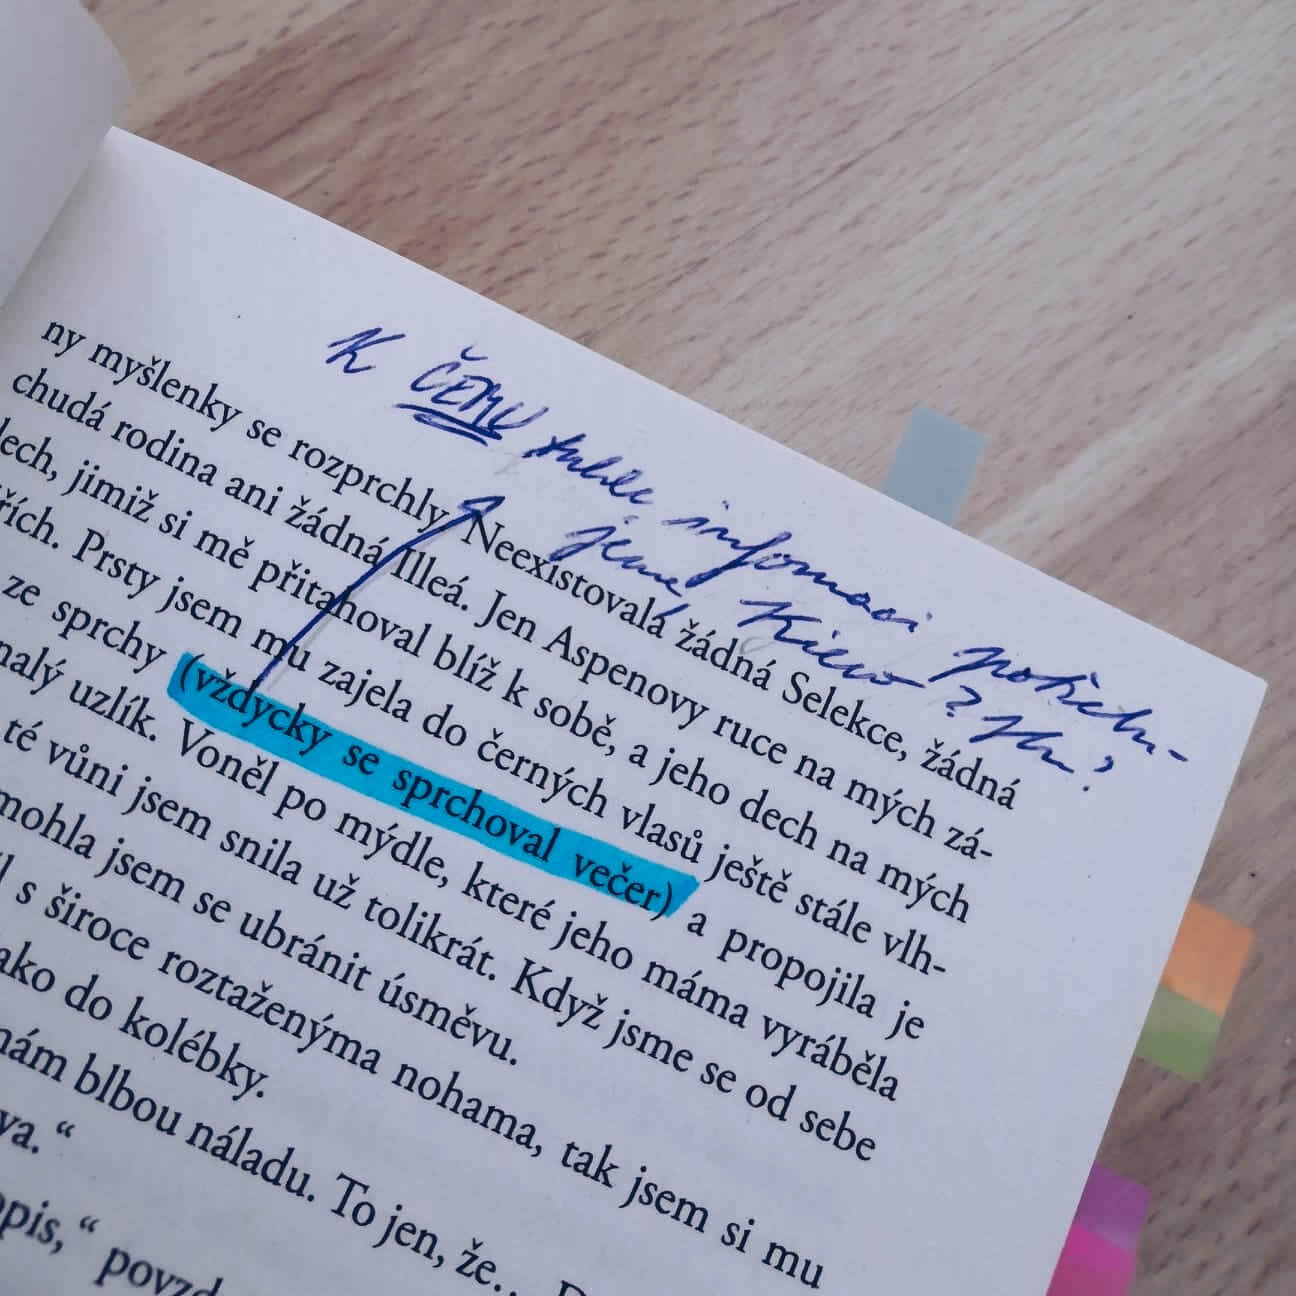 K ČEMU tuhle infomaci potřebu-
jeme, Kiero? Hm?
ny myšlenky se rozprchly. Neexistovala žádná Selekce, žádná
chudá rodina ani žádná Illeá. Jen Aspenovy ruce na mých zá-
dech, jimiž si mě přitahoval blíž k sobě, a jeho dech na mých
řích. Prsty jsem mu zajela do černých vlasů ještě stále vlh-
ze sprchy (vždycky se sprchoval večer) a propojila je
malý uzlík. Voněl po mýdle, které jeho máma vyráběla
té vůni jsem snila už tolikrát. Když jsme se od sebe
mohla jsem se ubránit úsměvu.
l s široce roztaženýma nohama, tak jsem si mu
ako do kolébky.
mám blbou náladu. To jen, že…
va.“
opis,“ povzd